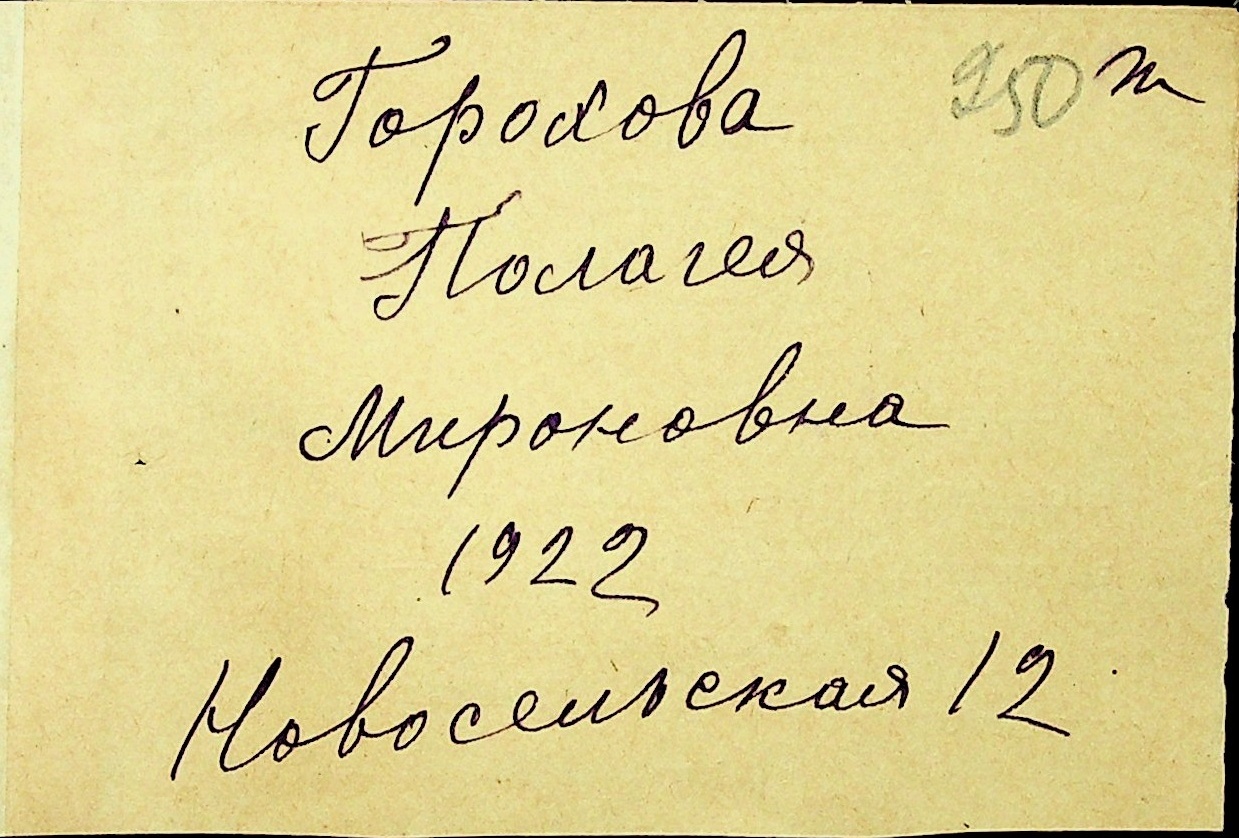 Горохова 250 т
Полагея
Мироновна
1922
Новосельская 12